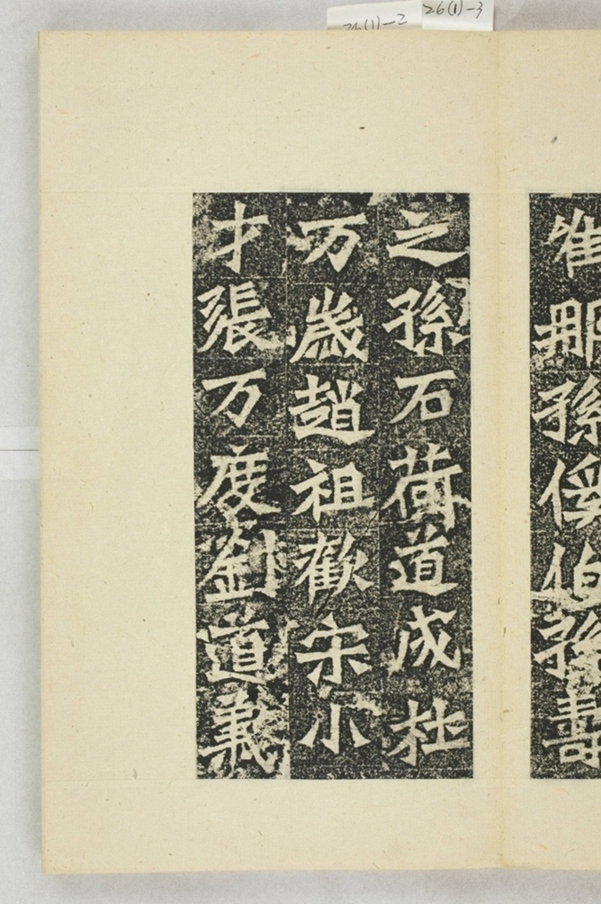 26(1)-2
26(1)-3
那孫俟伯孫壽
之孫石荷道成杜
万歲趙祖歡宋小
才張万度劉道義